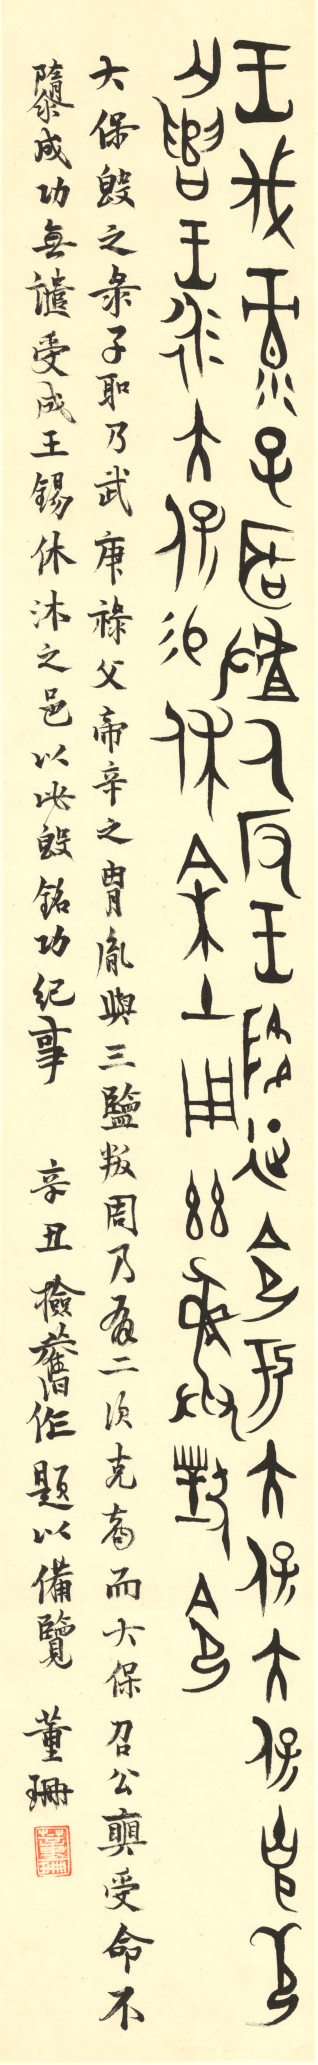 王伐彔子耴𠭯氒反王降征令于大保大保克芍
亡遣王侃大保易休余土用茲彝對令
大保𣪘之彔子耴乃武庚祿父帝辛之冑胤與三監叛周乃有二次克商而大保召公奭受命不
隳成功無譴受成王錫休沐之邑以此𣪘銘功紀事 辛丑檢舊作題以備覽 董珊
董珊